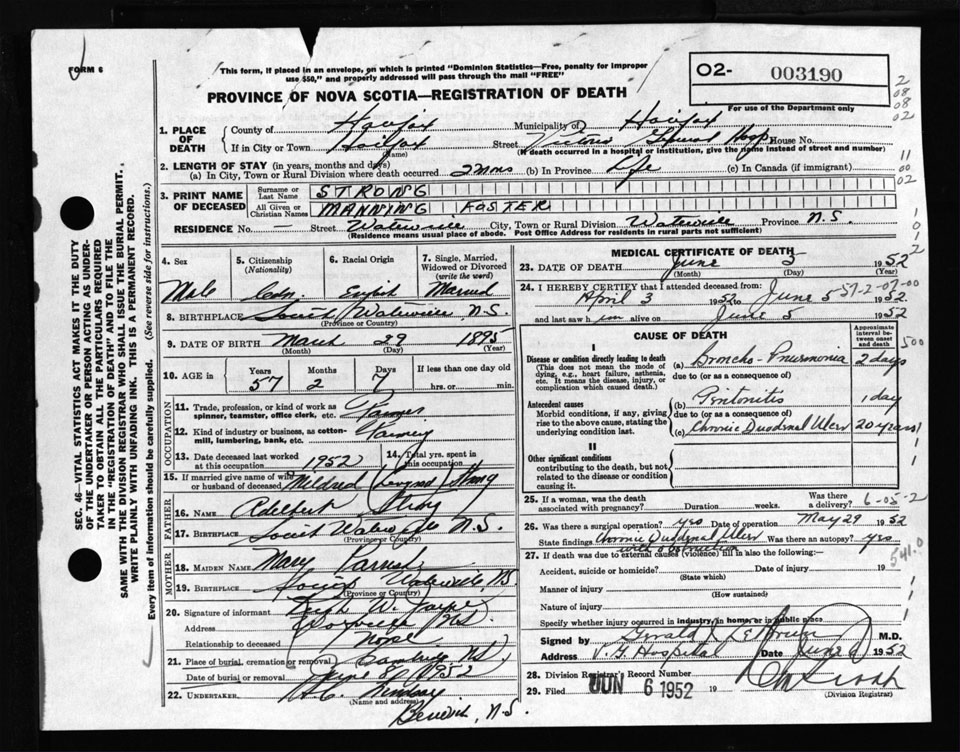 FORM 6
This form, if placed in an envelope, on which is printed "Dominion Statistics—Free, penalty for improper
use $50," and properly addressed will pass through the mail "FREE"
O2- 003190
For use of the Department only
PROVINCE OF NOVA SCOTIA—REGISTRATION OF DEATH
2 08 08 02
11 00 02
SEC. 46—VITAL STATISTICS ACT MAKES IT THE DUTY
OF THE UNDERTAKER OR PERSON ACTING AS UNDER-
TAKER TO OBTAIN ALL THE PARTICULARS REQUIRED
IN THE "REGISTRATION OF DEATH" AND TO FILE THE
SAME WITH THE DIVISION REGISTRAR WHO SHALL ISSUE THE BURIAL PERMIT.
WRITE PLAINLY WITH UNFADING INK. THIS IS A PERMANENT RECORD.
Every item of information should be carefully supplied. (See reverse side for instructions.)
1. PLACE OF DEATH
County of Halifax Municipality of Halifax
If in City or Town Halifax Street Victoria General Hosp House No.
(Name) (If death occurred in a hospital or institution, give the name instead of street and number)
2. LENGTH OF STAY (in years, months and days)
(a) In City, Town or Rural Division where death occurred 2 mos (b) In Province Life (c) In Canada (if immigrant)
3. PRINT NAME OF DECEASED
Surname or Last Name STRONG
All Given or Christian Names MANNING FOSTER
RESIDENCE No. — Street Waterville City, Town or Rural Division Waterville Province N.S.
(Residence means usual place of abode. Post Office Address for residents in rural parts not sufficient)
4. Sex 5. Citizenship (Nationality) 6. Racial Origin 7. Single, Married, Widowed or Divorced (write the word)
Male Cdn. English Married
8. BIRTHPLACE Waterville, N.S.
(Province or Country)
9. DATE OF BIRTH March 29 1895
(Month) (Day) (Year)
10. AGE in Years Months Days If less than one day
57 2 7 hrs. or min.
OCCUPATION
11. Trade, profession, or kind of work as
spinner, teamster, office clerk, etc. Farmer
12. Kind of industry or business, as cotton-
mill, lumbering, bank, etc. Farming
13. Date deceased last worked at this occupation 1952
14. Total yrs. spent in this occupation
15. If married give name of wife or husband of deceased Mildred Strong
FATHER
16. Name Adelbert Strong
17. Birthplace Waterville N.S.
(Province or Country)
MOTHER
18. MAIDEN NAME Mary Parrish
19. BIRTHPLACE Waterville, NS
(Province or Country)
20. Signature of informant W. Payne
Address NS
Relationship to deceased None
21. Place of burial, cremation or removal NS.
Date of burial or removal June 8, 1952
22. UNDERTAKER H.C. Lindsay
(Name and address)
Berwick, N.S.
MEDICAL CERTIFICATE OF DEATH
23. DATE OF DEATH June 5 1952
(Month) (Day) (Year)
24. I HEREBY CERTIFY that I attended deceased from:
April 3 1952 to June 5 1952
57-2-07-00
and last saw him alive on June 5 1952
CAUSE OF DEATH
Approximate interval between onset and death
I
Disease or condition directly leading to death
(This does not mean the mode of
dying, e.g., heart failure, asthenia,
etc. It means the disease, injury, or
complication which caused death.)
(a) Broncho-Pneumonia 2 days
500
due to (or as a consequence of)
Antecedent causes
Morbid conditions, if any, giving
rise to the above cause, stating the
underlying condition last.
(b) Peritonitis 1 day
due to (or as a consequence of)
(c) Chronic Duodenal Ulcer 20 years
II
Other significant conditions
contributing to the death, but not
related to the disease or condition
causing it.
25. If a woman, was the death associated with pregnancy? Duration weeks. Was there a delivery?
6-05-2
26. Was there a surgical operation? yes Date of operation May 29 1952
State findings Chronic Duodenal Ulcer Was there an autopsy? yes
with obstruction
541.0
27. If death was due to external causes (violence) fill in also the following:—
Accident, suicide or homicide? Date of injury 19
(State which)
Manner of injury
(How sustained)
Nature of injury
Specify whether injury occurred in industry, in home, or in public place
Signed by Gerald M.D.
Address V.G Hospital Date June 6 1952
28. Division Registrar's Record Number
29. Filed JUN 6 1952 19
(Division Registrar)